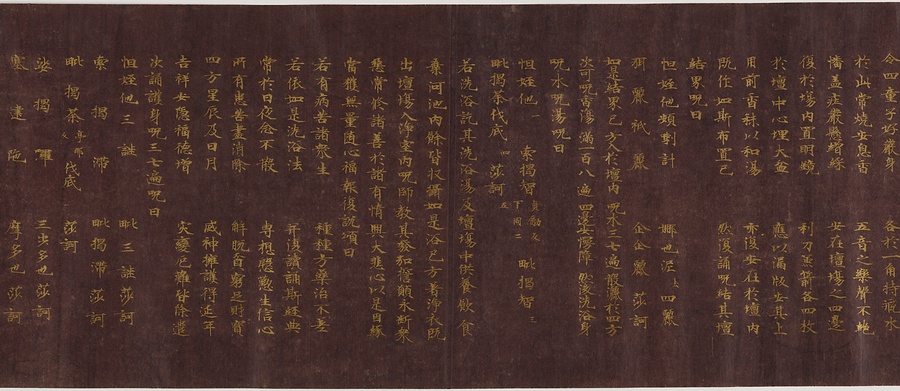 令四童子好嚴身　各於一角持瓶水
於此常燒安息香　五音之樂聲不絕
幡蓋莊嚴懸繒綵　安在壇場之四邊
復於場內置明鏡　利刀兼箭各四枚
於壇中心埋大盆　應以漏版安其上
用前香末以和湯　亦復安在於壇內
既作如斯布置已　然後誦呪結其壇
結界呪曰
怛姪他頞剌計　娜也泥去四麗
弭麗祇麗　企企麗莎訶
如是結界已方入於壇內　呪水三七遍散灑於四方
次可呪香湯滿一百八遍　四邊安幔障然後洗浴身
呪水呪湯呪曰
怛姪他一　索揭智貞勵反下同二　毗揭智三
毗揭茶伐底四　莎訶五
若洗浴訖其洗浴湯及壇場中供養飲食
棄河池內餘皆收攝如是浴已方著淨衣既
出壇場入淨室內呪師教其發弘誓願永斷眾
惡常修諸善於諸有情興大悲心以是因緣
當獲無量隨心福報復說頌曰
若有病苦諸眾生　種種方藥治不差
若依如是洗浴法　并復讀誦斯經典
常於日夜念不散　專想慇懃生信心
所有患苦盡消除　解脫貧窮足財寶
四方星辰及日月　威神擁護得延年
吉祥安隱福德增　災變厄難皆除遣
次誦護身呪三七遍呪曰
怛姪他三謎　毗三謎莎訶
索揭滯　毗揭滯莎訶
毗揭茶亭耶反伐底　莎訶
娑揭囉　三步多也莎訶
塞建陀　摩多也莎訶